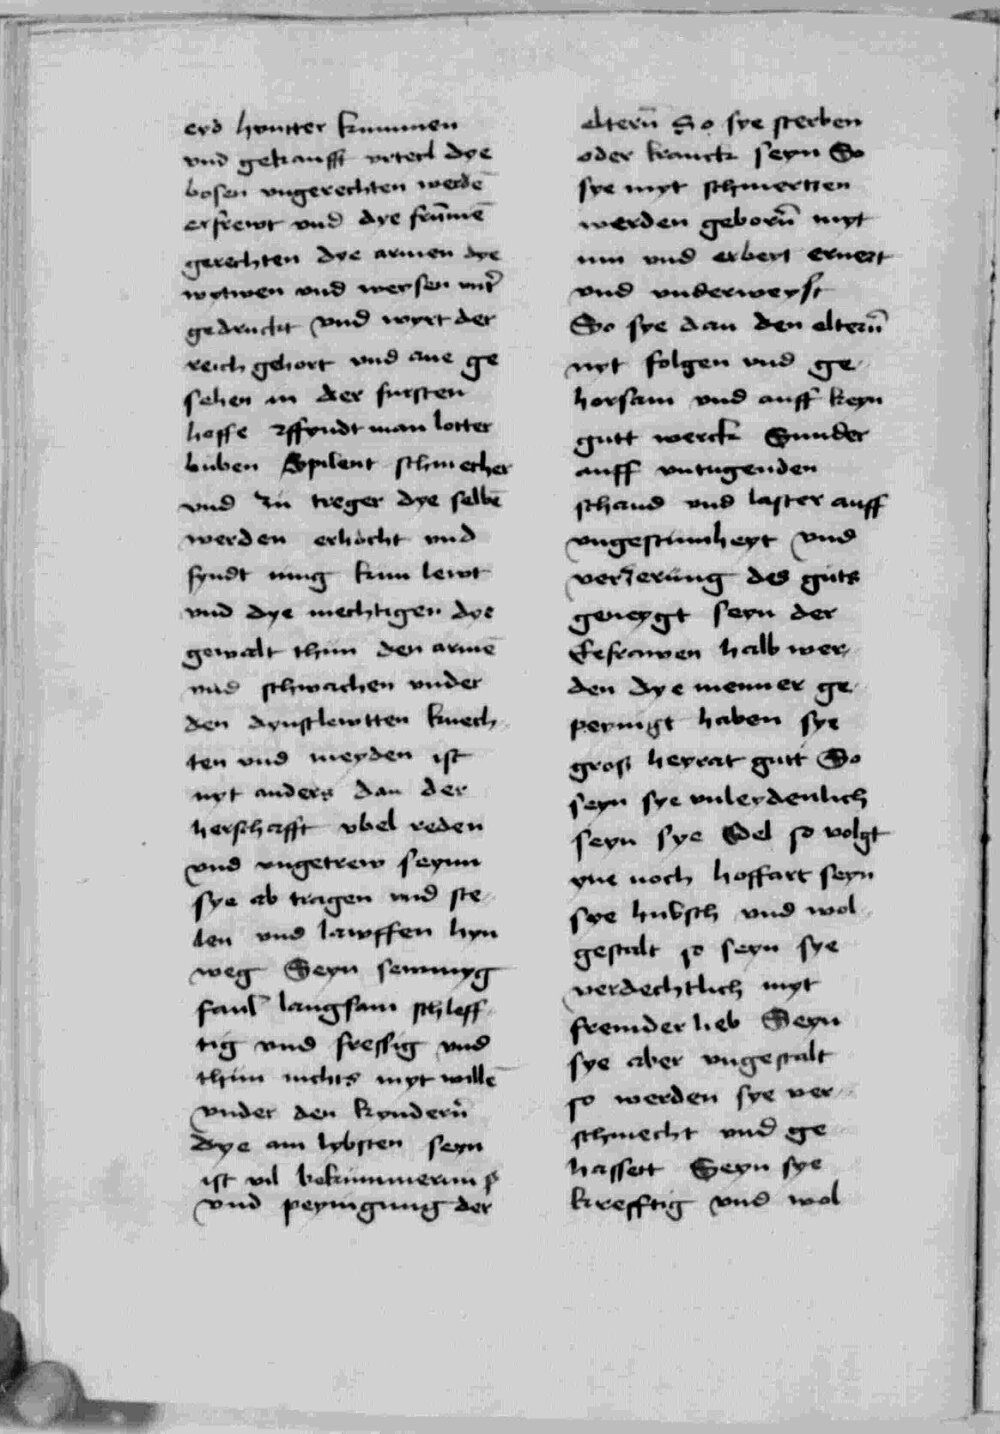 eyd hyntter kummen
vnd gekaufft vrteil dye
bosen vngerechten werdē
erfrewt vnd dye frūmē
gerechten dye armen dye
wytwen vnd weysen
gedruckt vnd wyrt der
reich gehort vnd ane ge
sehen in der fursten
hoffe man lotter
buben Spilent schmecher
vnd zu treger dye selbē
werden erhocht vnd
syndt lewt
vnd dye mechtigen dye
gewalt thun den armē
vnd schwachen vnder
den dynstlewtten knech
ten vnd meyden ist
nyt anders dan der
herschafft vbel reden
vnd vngetrew seynn
sye ab tragen vnd ste
len vnd lawffen hyn
weg Seyn sewmyg
faul langsam schleff
tig vnd fressig vnd
thun nichts myt willē
vnder den kyndern̄
dye am lybsten seyn
ist vil bekummernuß
vnd peynigung der
eltern̄ So sye sterben
oder kranck seyn So
sye myt schmertzen
werden geborn̄ myt
mu vnd erbeyt ernert
vnd vnderweyst
So sye dan den eltern̄
nyt folgen vnd ge
horsam vnd auff keyn
gutt werck Sunder
auff vntugenden
schand vnd laster auff
vngestumheyt vnd
verzerung des guts
geneygt seyn der
Eefrawen halb wer
den dye menner ge
peynigt haben sye
groß heyrat gutt So
seyn sye vnleydenlich
seyn sye Edel so volgt
yne noch hoffart seyn
sye hubsch vnd wol
gestalt so seyn sye
verdechtlich myt
fremder lieb Seyn
sye aber vngestalt
so werden sye ver
schmecht vnd ge
hassett Seyn sye
krefftig vnd wol